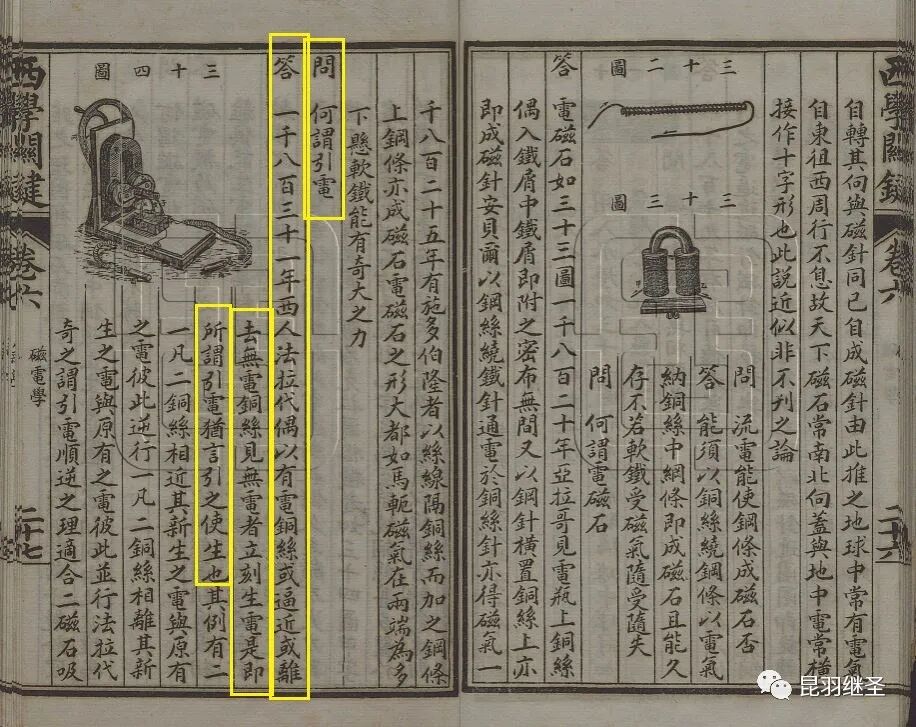 西學關鍵 卷六 二十六
自轉其向與磁針同已自成磁針由此推之地球中常有電氣
自東徂西周行不息故天下磁石常南北向蓋與地中電常橫
接作十字形也此說近似非不刊之論
三十二圖
三十三圖
問 流電能使鋼條成磁石否
答 能須以銅絲繞鋼條以電氣
納銅絲中綱條即成磁石且能久
存不若軟鐵受磁氣隨受隨失
問 何謂電磁石
答 電磁石如三十三圖一千八百二十年亞拉哥見電瓶上銅絲
偶入鐵屑中鐵屑即附之密布無間又以鋼針橫置銅絲上亦
即成磁針安貝爾以鋼絲繞鐵針通電於銅絲針亦得磁氣一
千八百二十五年有施多伯隆者以絲線隔銅絲而加之鋼條
上鋼條亦成磁石電磁石之形大都如馬軛磁氣在兩端為多
下懸軟鐵能有奇大之力
問 何謂引電
答 一千八百三十一年西人法拉代偶以有電銅絲或逼近或離
三十四圖
去無電銅絲見無電者立刻生電是即
所謂引電猶言引之使生也其例有二
一凡二銅絲相近其新生之電與原有
之電彼此逆行一凡二銅絲相離其新
生之電與原有之電彼此並行法拉代
奇之謂引電順逆之理適合二磁石吸
西學關鍵 卷六 磁電學 二十七
昆羽继圣